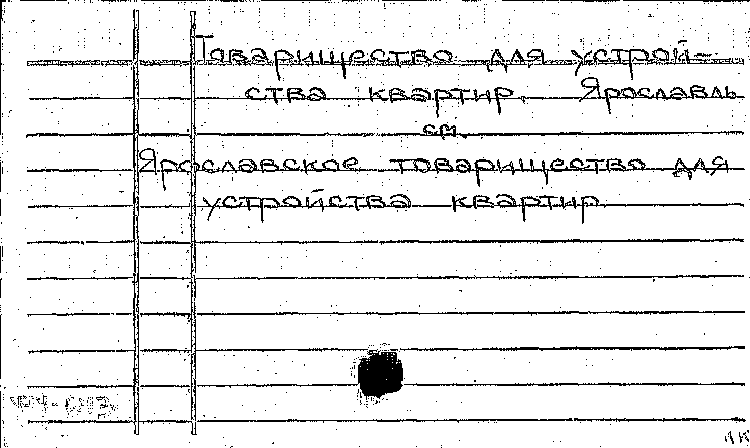 Товарищество для устрой-
ства квартир. Ярославль
см.
Ярославское товарищество для
устройства квартир.